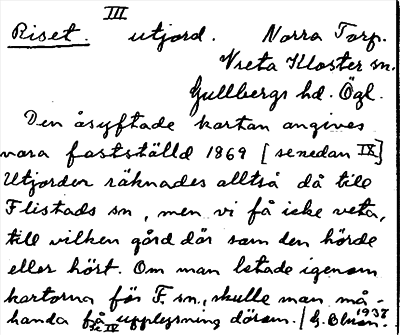 III
Riset. utjord. Norra Torp.
Vreta Kloster sn.
Gullbergs hd. Ögl.
Den åsyftade kartan angives
vara fastställd 1869 [senedan IX]
Utjorden räknades alltså då till
Flistads sn, men vi få icke veta,
till vilken gård där som den hörde
eller hört. Om man letade igenom
kartorna för F. sn, skulle man må-
handa få upplysning därom. / G. 1937
IV